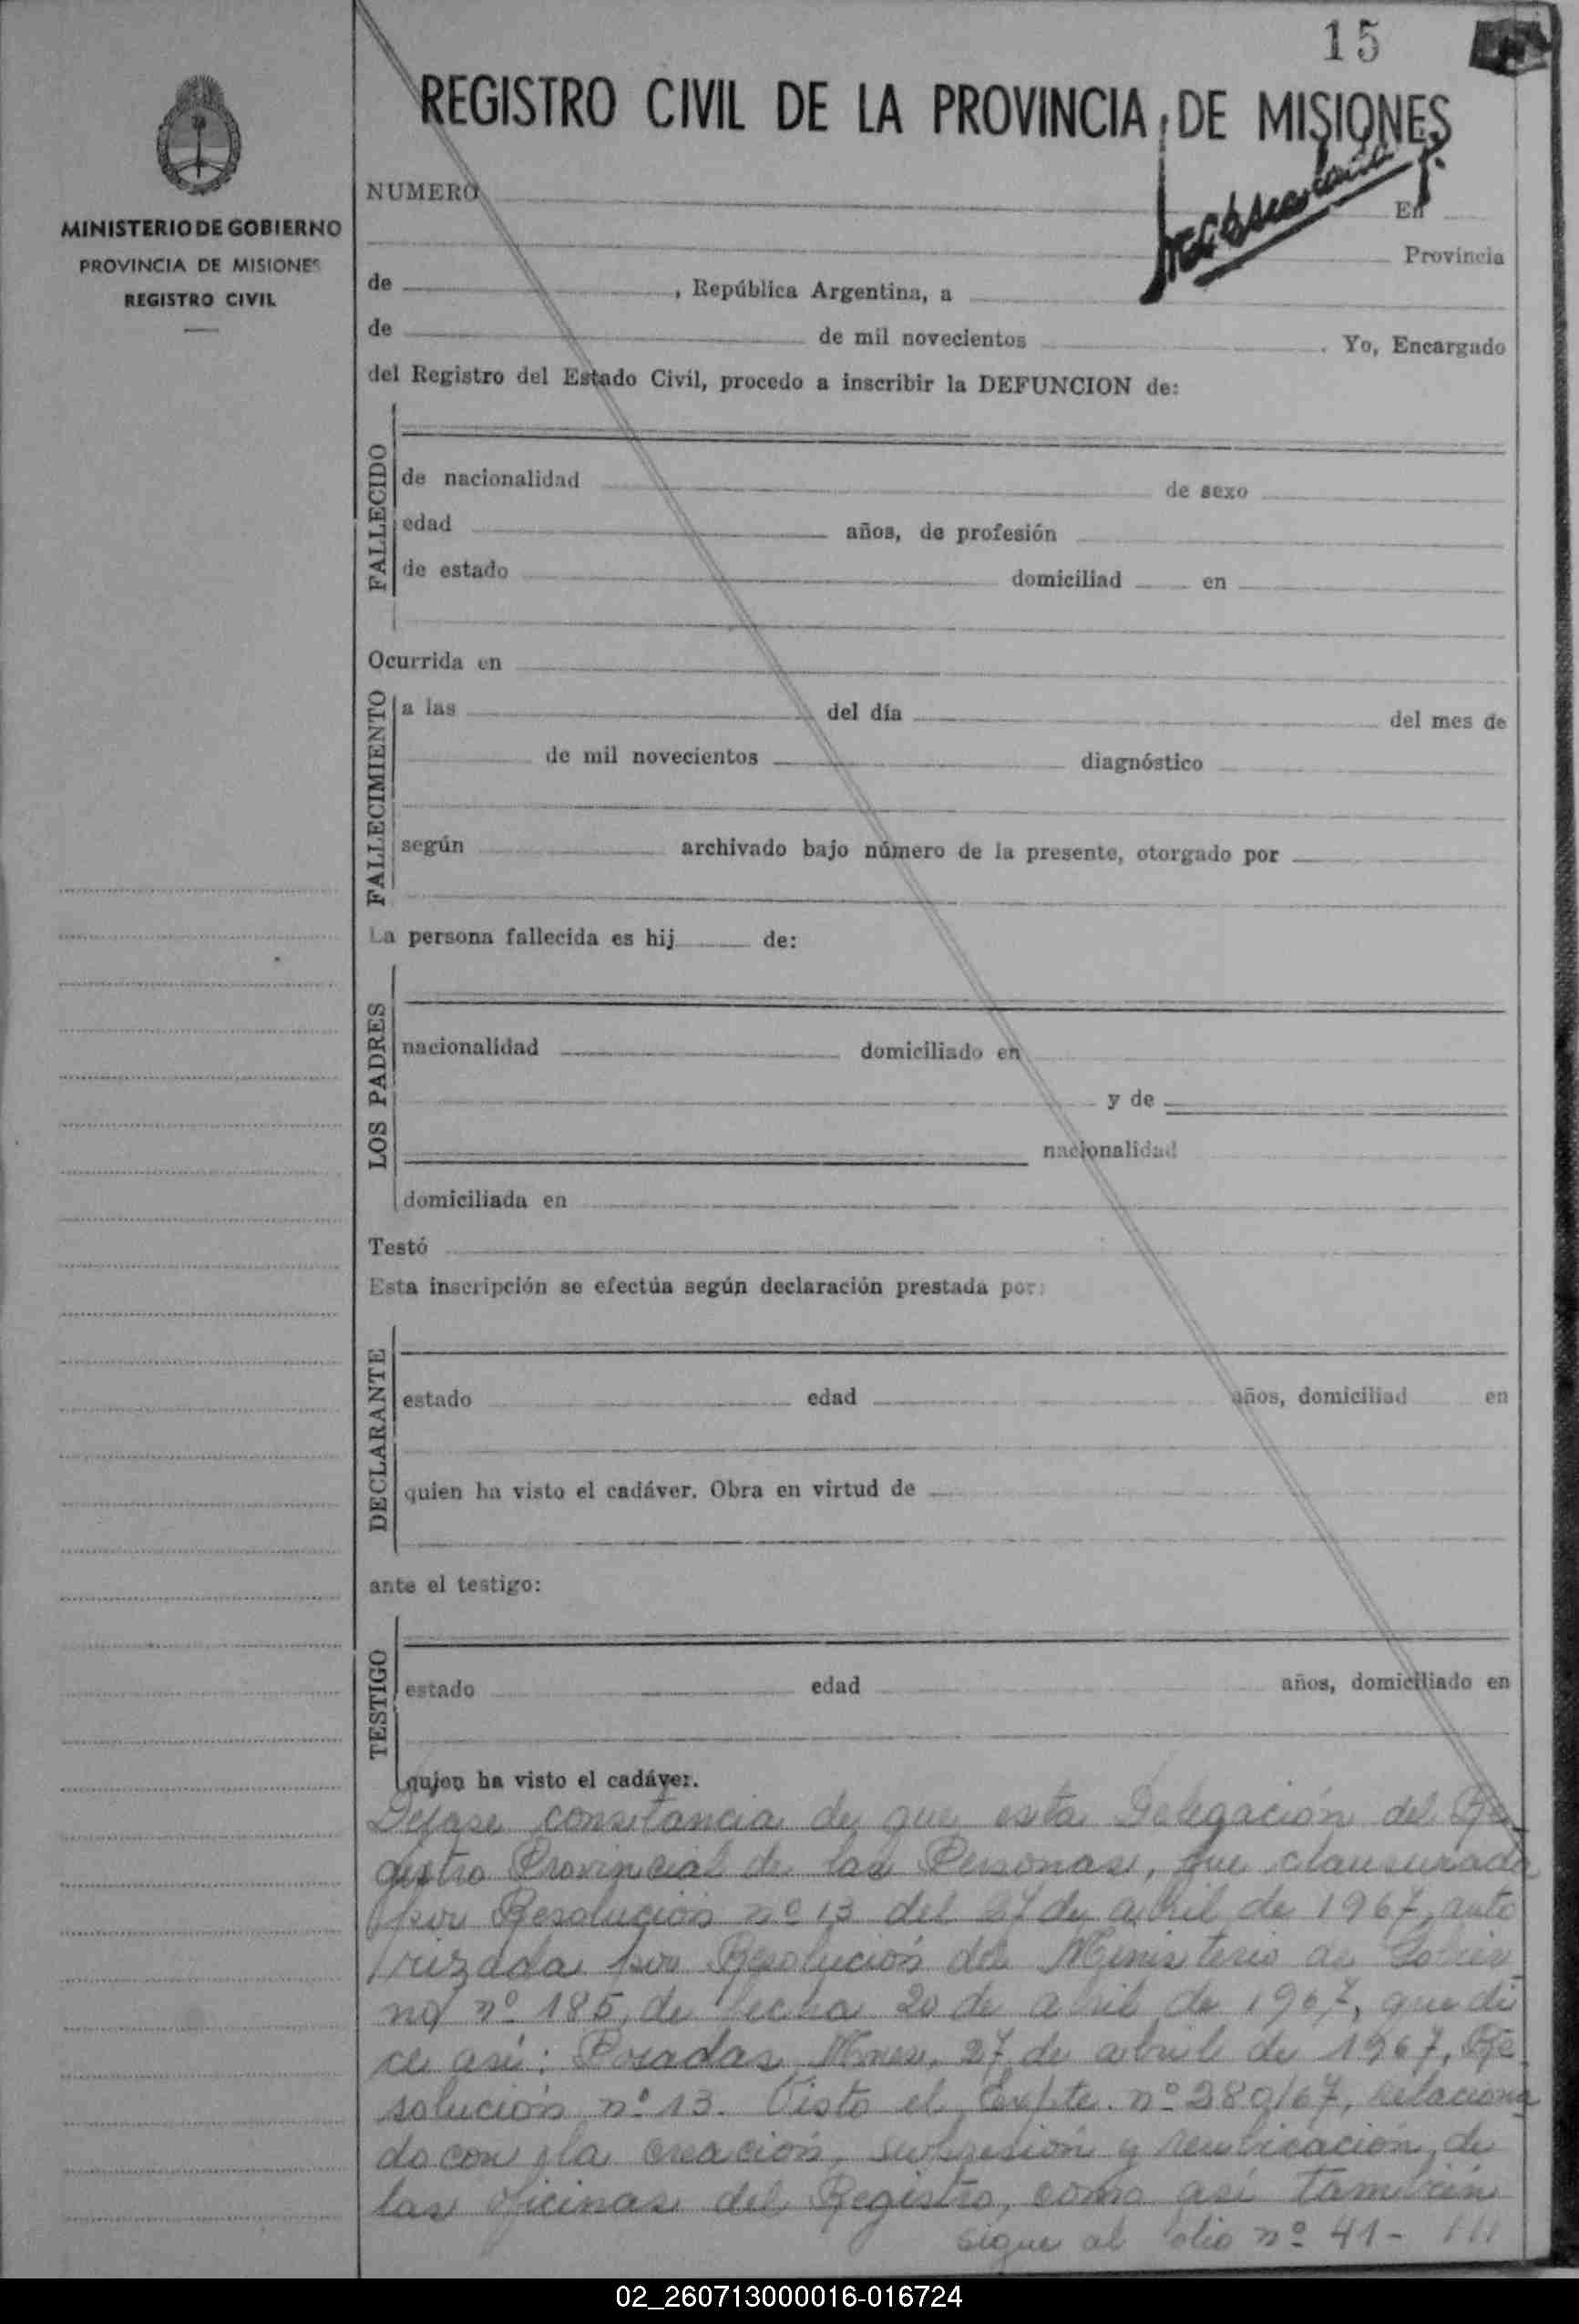 15
REGISTRO CIVIL DE LA PROVINCIA DE MISIONES
MINISTERIO DE GOBIERNO
PROVINCIA DE MISIONES
REGISTRO CIVIL
NUMERO En
Provincia
de , República Argentina, a
de de mil novecientos . Yo, Encargado
del Registro del Estado Civil, procedo a inscribir la DEFUNCION de:
FALLECIDO
de nacionalidad de sexo
edad años, de profesión
de estado domiciliad en
Ocurrida en
FALLECIMIENTO
a las del día del mes de
de mil novecientos diagnóstico
según archivado bajo número de la presente, otorgado por
La persona fallecida es hij de:
LOS PADRES
nacionalidad domiciliado en
y de
nacionalidad
domiciliada en
Testó
Esta inscripción se efectúa según declaración prestada por:
DECLARANTE
estado edad años, domiciliad en
quien ha visto el cadáver. Obra en virtud de
ante el testigo:
TESTIGO
estado edad años, domiciliado en
quien ha visto el cadáver.
Dejase constancia de que esta Delegación del Re
gistro Provincial de las Personas, fue clausurada
por Resolución nº 13 del 27 de abril de 1967, auto
rizada por Resolución del Ministerio de Gobier
no nº 185, de fecha 20 de abril de 1967, que di
ce así: Posadas, Mnes, 27 de abril de 1967, Re
solución nº 13. Visto el Expte. nº 280/67, relaciona
do con la creación, supresión y reubicación de
las oficinas del Registro, como así también
sigue al folio nº 41- ///
02_260713000016-016724